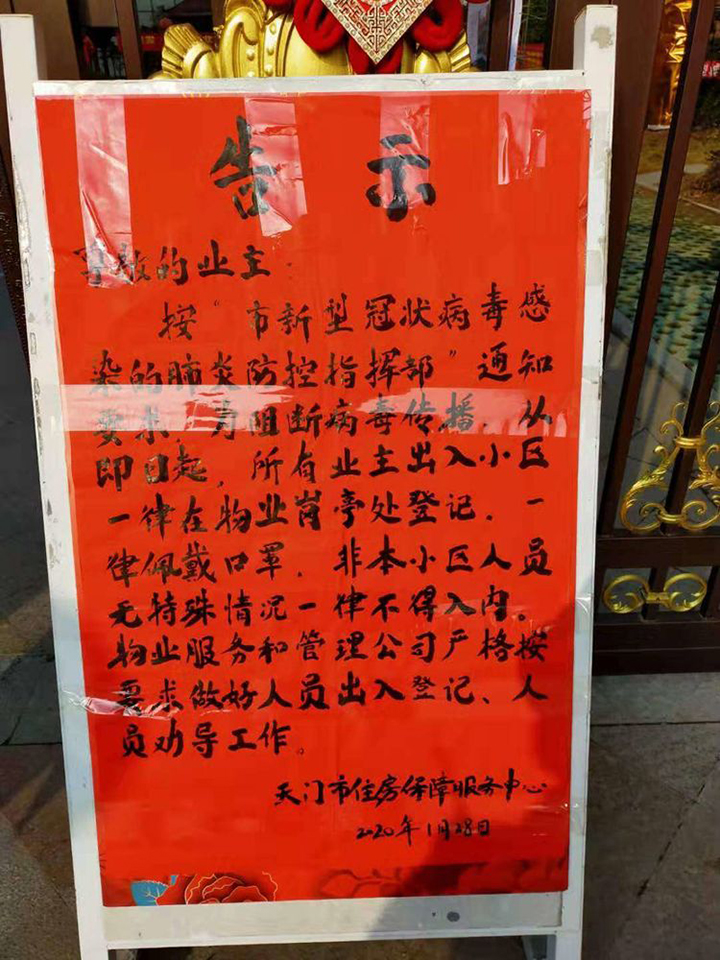 告示
尊敬的业主:
按“市新型冠状病毒感
染的肺炎防控指挥部”通知
要求,为阻断病毒传播,从
即日起,所有业主出入小区
一律在物业岗亭处登记、一
律佩戴口罩,非本小区人员
无特殊情况一律不得入内。
物业服务和管理公司严格按
要求做好人员出入登记、人
员劝导工作。
天门市住房保障服务中心
2020年1月28日